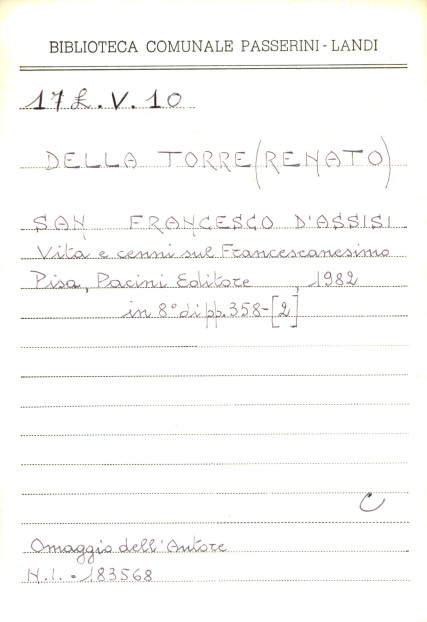 BIBLIOTECA COMUNALE PASSERINI - LANDI
17 £.V.10
DELLA TORRE (RENATO)
SAN FRANCESCO D'ASSISI
Vita e cenni sul Francescanesimo
Pisa, Pacini Editore, 1982
in 8° di pp. 358-[2]
C
Omaggio dell'Autore
N.I. = 183568